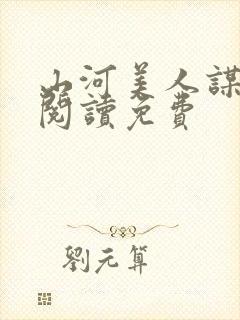 山河美人謀
閱讀免費
劉元算